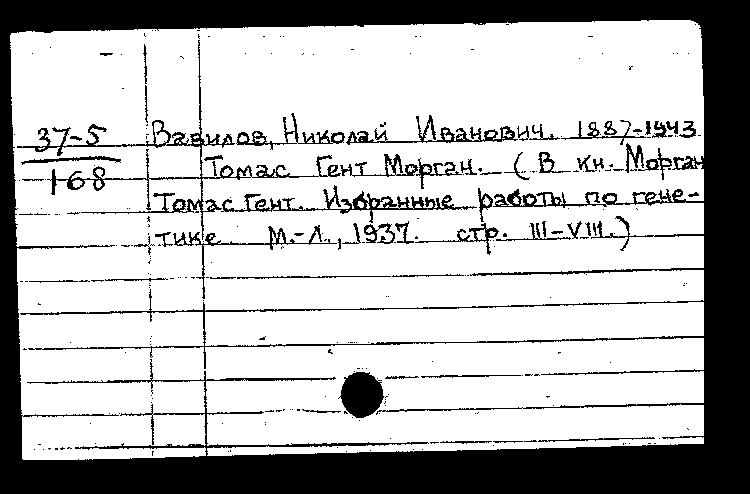 37-5
168
Вавилов, Николай Иванович. 1887-1943
Томас Гент Морган. (В кн. Морган
Томас Гент. Избранные работы по гене-
тике. М.-Л., 1937. стр. III-VIII.)